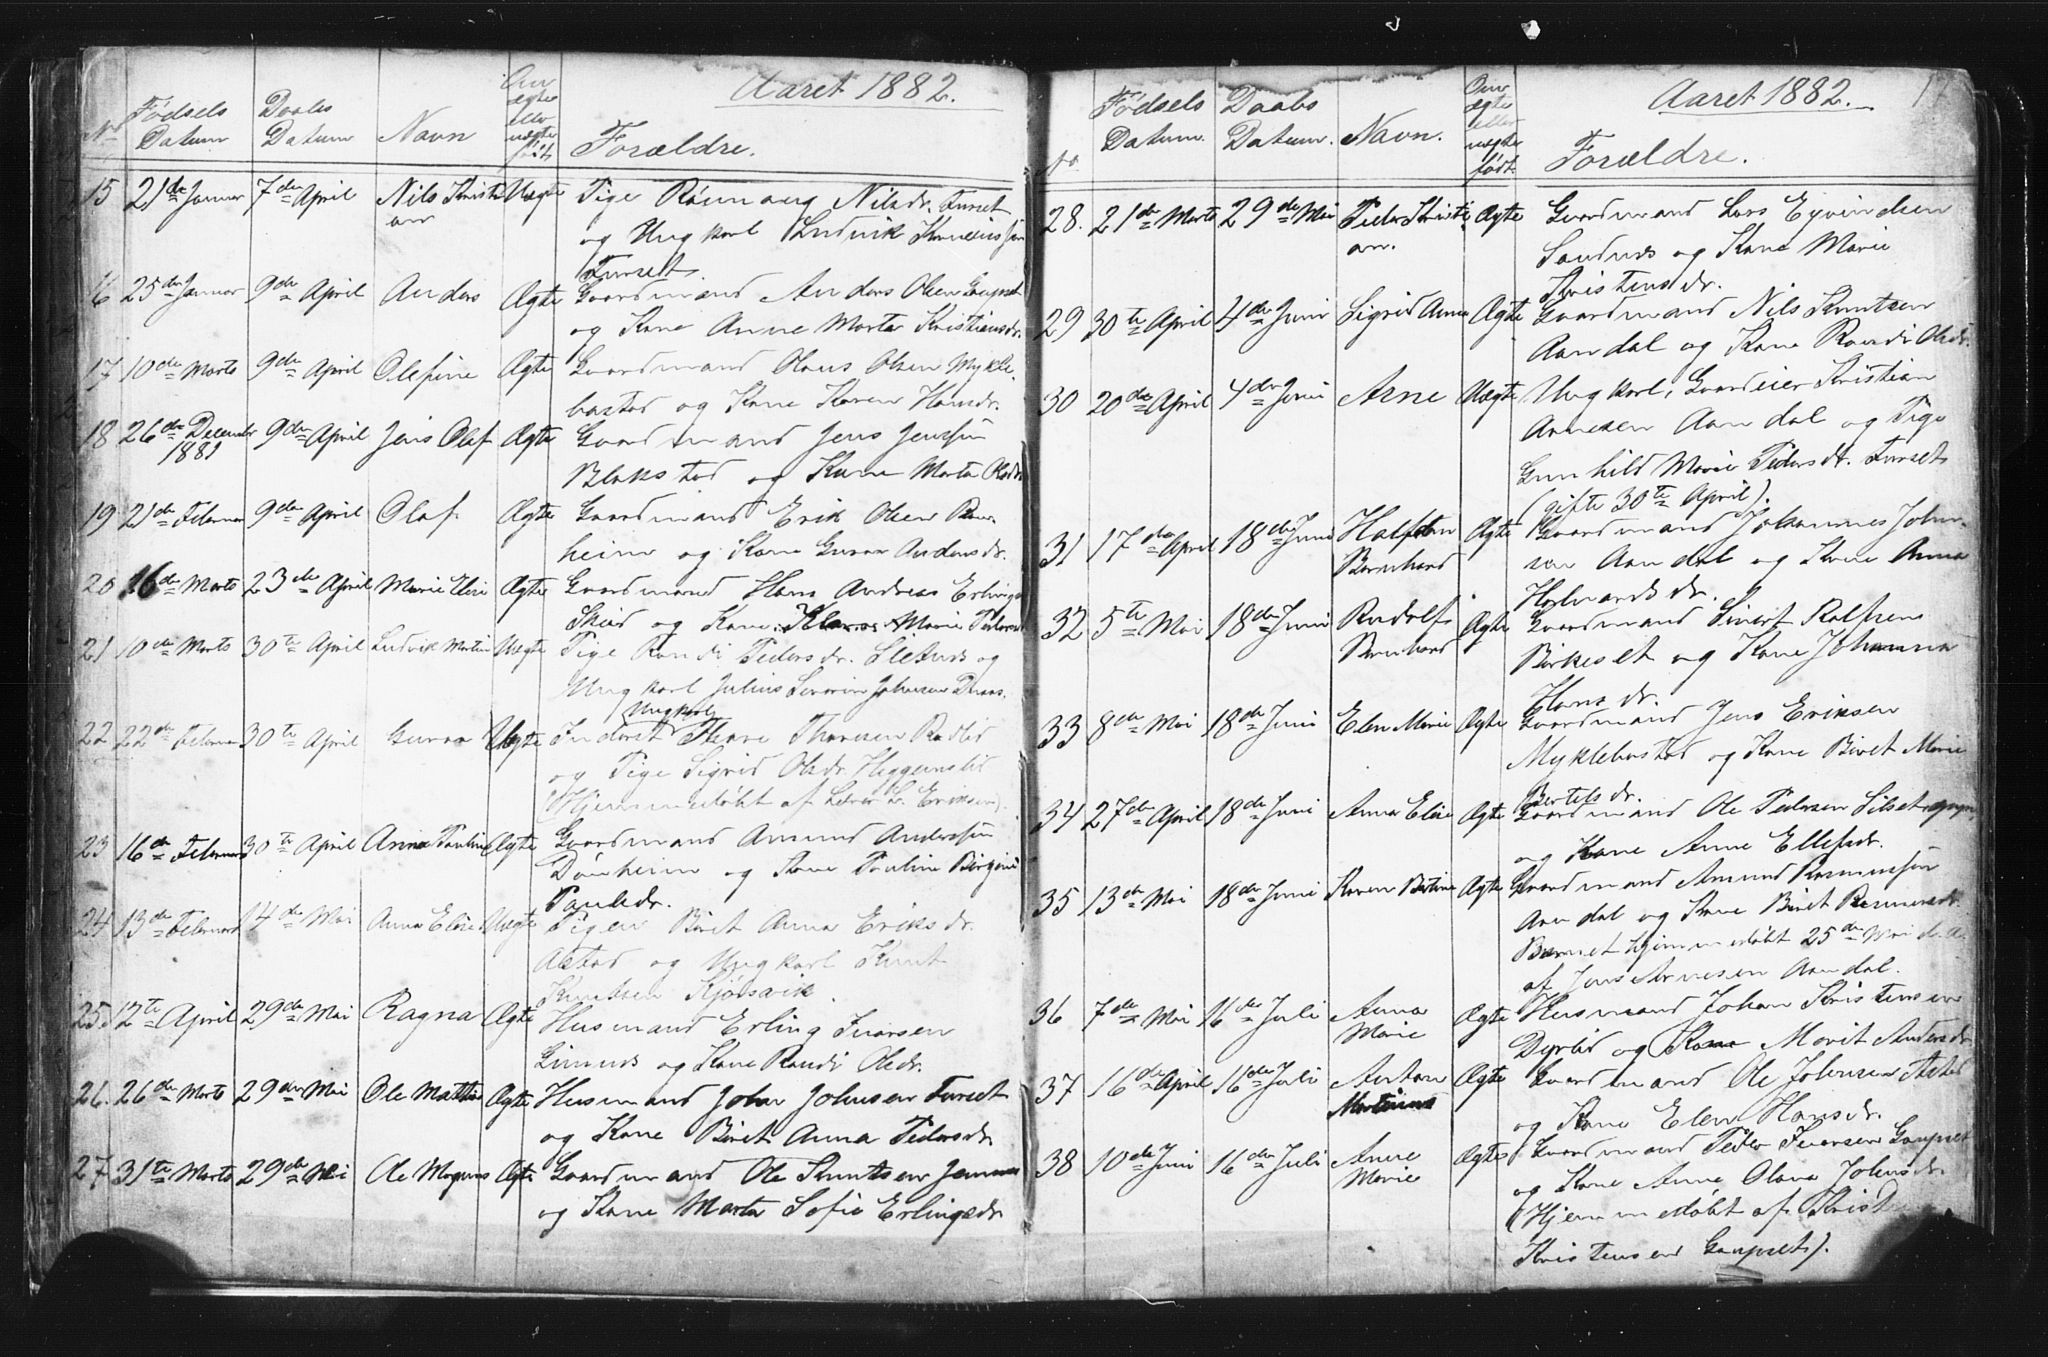 Aaret 1882.
No Fødsels Datum Daabs Datum Navn Om ægte eller uægte født Forældre.
15 21de Januar 7de April Nils Kristi Uægte Tige Rønnaug Nilsdr. Furset
an og Ungkarl Ludvik
Furset.
16 25de Januar 9de April Anders Ægte Gaardmand Anders Olsen Gaupset
og Kone Anne Marta Kristiansdr.
17 10de Marts 9de April Olefine Ægte Gaardmand Olaus Olsen Mykle-
bostad og Kone Karen Hansdr.
18 26de December 9de April Jens Olaf Ægte Gaardmand Jens Jenssøn
1881 Blakstad og Kone Marta Olsdr.
19 21de Februar 9de April Olaf Ægte Gaardmand Erik Olsen
heim og Kone Guraa Andersdr.
20 16de Marts 23de April Marie Elise Ægte Gaardmand Hans Andreas Erlings
Skeid og Kone Marie Pedersdr
21 10de Marts 30te April Ludvik Martin Uægte Pige Randi Pedersdr. Sletnes og
Ungkarl Julius Severin Johnsen
Ungkarl
22 22de Februar 30te April Guraa Uægte Inderst Thore Thoresen Rødlid
og Pige Sigrid Olsdr. Heggemslid
(Hjemmedøbt af Lærer L. Eriksen).
23 16de Februar 30te April Anna Pauline Ægte Gaardmand Amund Anderssøn
Dønheim og Kone Pauline Birgine
Paulsdr.
24 13de Februar 14de Mai Anna Elise Uægte Pigen Biret Anna Eriksdr.
Astad og Ungkarl Knut
Knutsen Kjøsvik.
25. 12te April 29de Mai Ragna Ægte Husmand Erling Ivarsen
Limnes og Kone Randi Olsdr.
26. 26de Marts 29de Mai Ole Mattias Ægte Husmand John Johnsen Furset
og Kone Biret Anna Pedersdr.
27 31te Marts 29de Mai Ole Magnus Ægte Gaardmand Ole Knutsen
og Kone Marta Sofie Erlingsdr.
Aaret 1882. 17
No Fødsels Datum. Daabs Datum. Navn. Om ægte eller uægte født. Forældre.
28. 21de Marts 29de Mai Peder Kristi Ægte Gaardmand Lars Eyvindsen
an. Sandnes og Kone Marie
Kristensdr.
29 30te April 4de Juni Sigrid Anna Ægte Gaardmand Nils Knutsen
Aandal og Kone Randi Olsdr.
30 20de April 4de Juni Arne Uægte Ungkarl, Gaardeier Kristian
Arnesen Aandal og Pige
Gunhild Marie Pedersdr. Furset
(gifte 30te April).
31 17de April 18de Juni Halfdan Ægte Gaardmand Johannes John-
Bernhard sen Aandal og Kone Anna
Halvardsdr.
32 5te Mai 18de Juni Rudolf Ægte Gaardmand Sivert Rolfsen
Bernhard Birkeset og Kone Johanna
Hansdr.
33 8de Mai 18de Juni Elen Marie Ægte Gaardmand Jens Eriksen
Myklebostad og Kone Biret Marie
Bertelsdr.
34 27de April 18de Juni Anna Elise Ægte Gaardmand Ole Pedersen Silset
og Kone Anne Ellefsdr.
35 13de Mai 18de Juni Karen Bertine Ægte Gaardmand Amund Rasmussøn
Aandal og Kone Biret Rasmusdr.
Barnet hjemmedøbt 25de Mai d. A.
af Jens Arnesen Aandal.
36 7de Mai 16de Juli Anna Ægte Husmand Johan Kristensen
Marie Dyrlid og Kone Marit Andersdr.
37 16de April 16de Juli Anton Ægte Gaardmand Ole Johnsen Astad
Martinus og Kone Elen Hansdr.
38 10de Juni 16de Juli Anne Ægte Gaardmand Peder Iversen Gaupset
Marie og Kone Anne Olava Johnsdr.
(Hjemmedøbt af
Kristensen Gaupset).